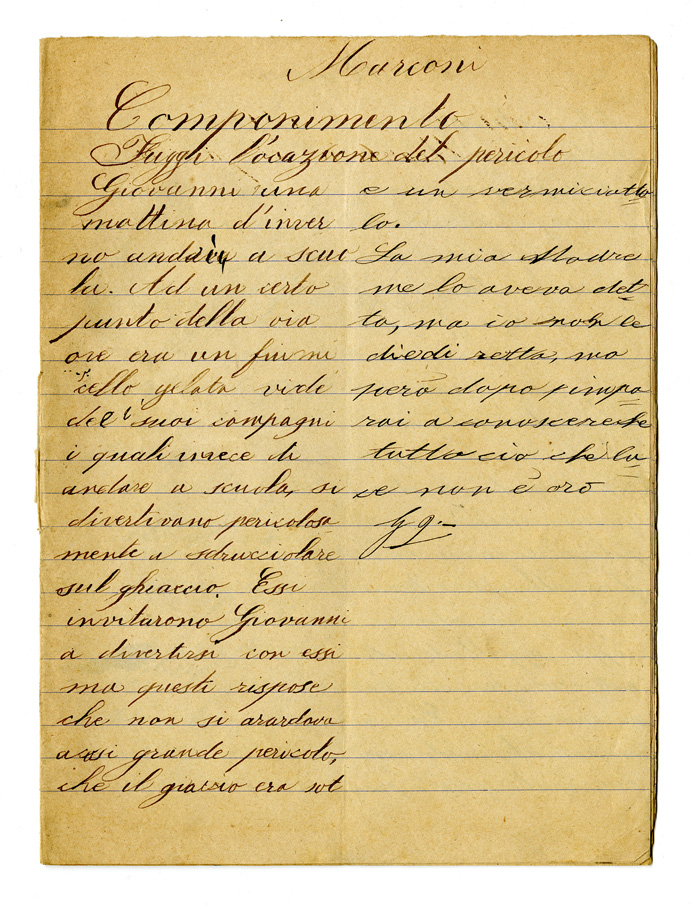 Marconi
Componimento
Fuggi l'ocazione del pericolo
Giovanni una
mattina d'inver
no andava a scuo
la. Ad un certo
punto della via
ove era un fiumi
cello gelato vide
dei suoi compagni
i quali invece di
andare a scuola, si
divertivano pericolosa
mente a sdrucciolare
sul ghiaccio. Essi
invitarono Giovanni
a divertirsi con essi
ma questi rispose
che non si arardava
a cosi grande pericolo,
che il giaccio era sot
e un vermiciatto
lo.
La mia Madre
me lo aveva det
to, ma io non le
diedi retta, ma
però dopo impa
rai a conoscere che
tutto cio che lu
ce non è oro